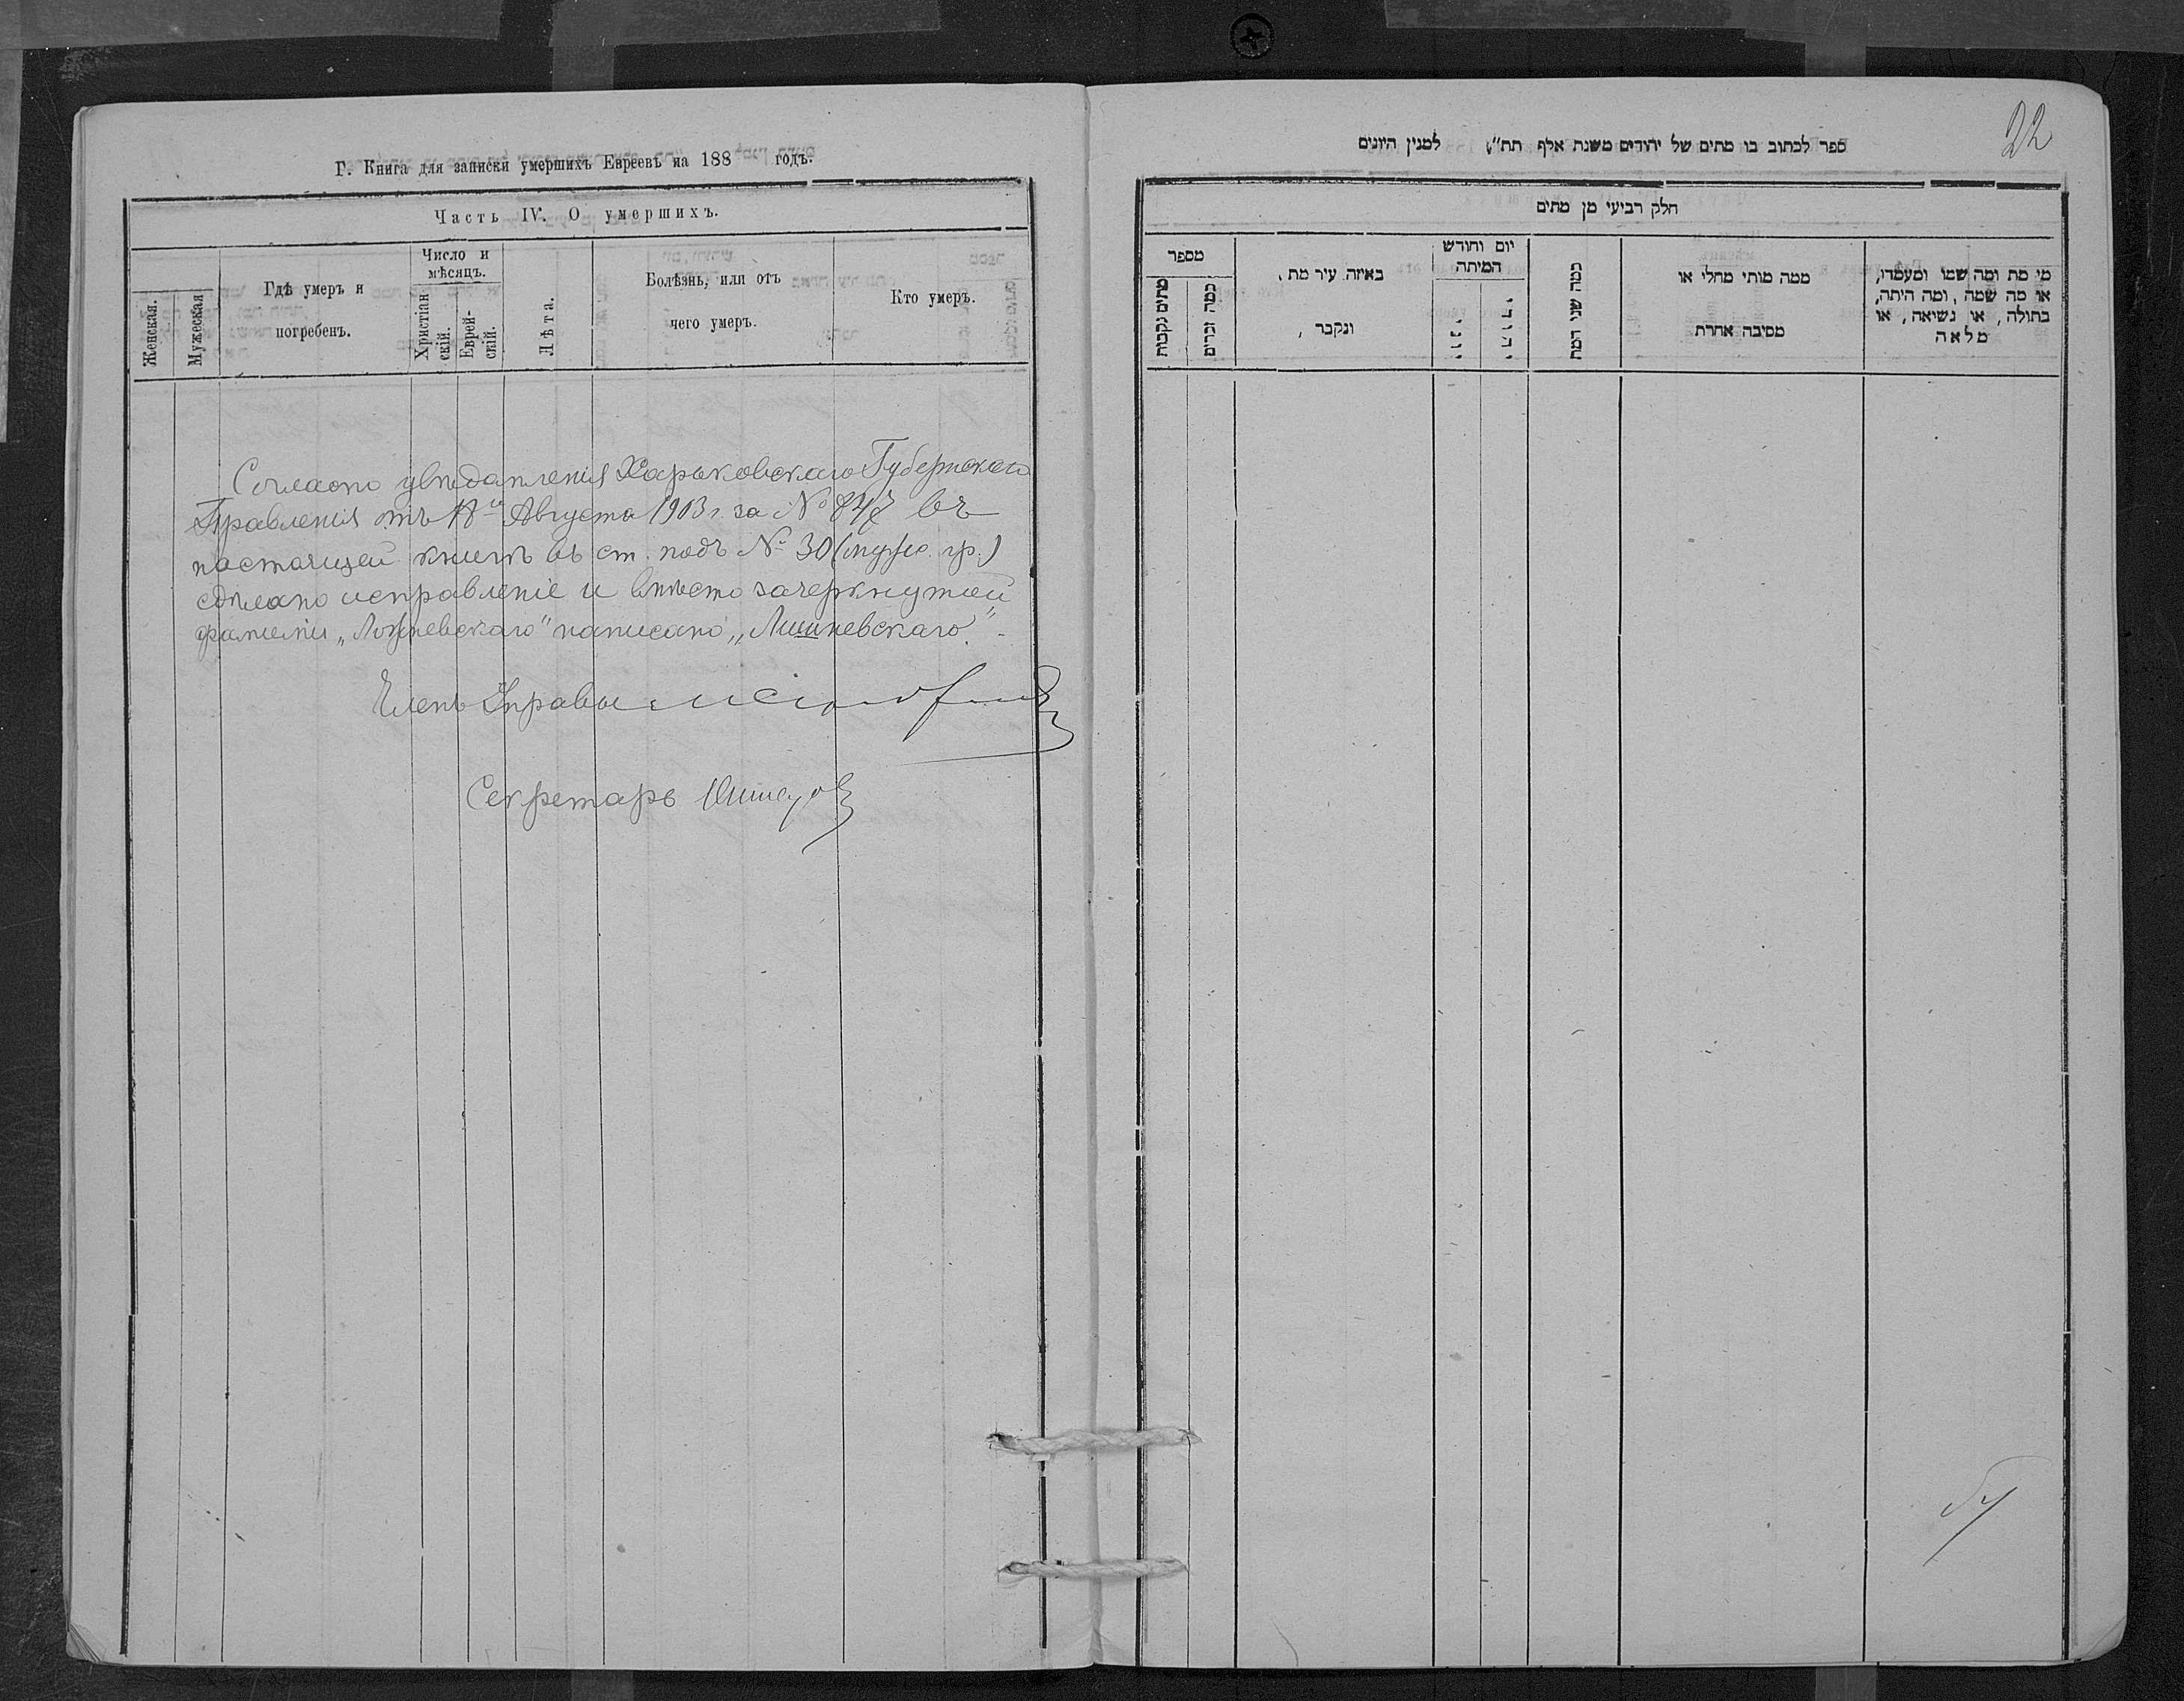 Г. Книга для записки умершихъ Евреевъ на 188 годъ.
Часть IV. О умершихъ.
Женская.
Мужеская
Гдѣ умеръ и
погребенъ.
Число и
мѣсяцъ.
Христіан
скій.
Еврей-
скій.
Лѣта.
Болѣзнь, или отъ
чего умеръ.
Кто умеръ.
Согласно увѣдомленія Харьковскаго Губернскаго
Правленія отъ Августа 1903 г. за № 847 въ
настоящей книгѣ въ ст. подъ № 30 (мужс. гр.)
сдѣлано исправленіе и вмѣсто зачеркнутой
фамиліи написано „Лишневскаго".
Членъ Управы
Секретарь
22
ספר לכתוב בו מתים של יהודים משנת אלף תת"י למנין היונים
חלק רביעי מן מתים
מספר
מתים נקבות
כמה זכרים
באיזה עיר מת,
ונקבר,
יום וחודש
המיתה
כמה שני המת
ממה מותי מחלי או
מסיבה אחרת
מי מת ומה שמו ומעמדו,
או מה שמה, ומה היתה,
בתולה, או נשיאה, או
מלאה